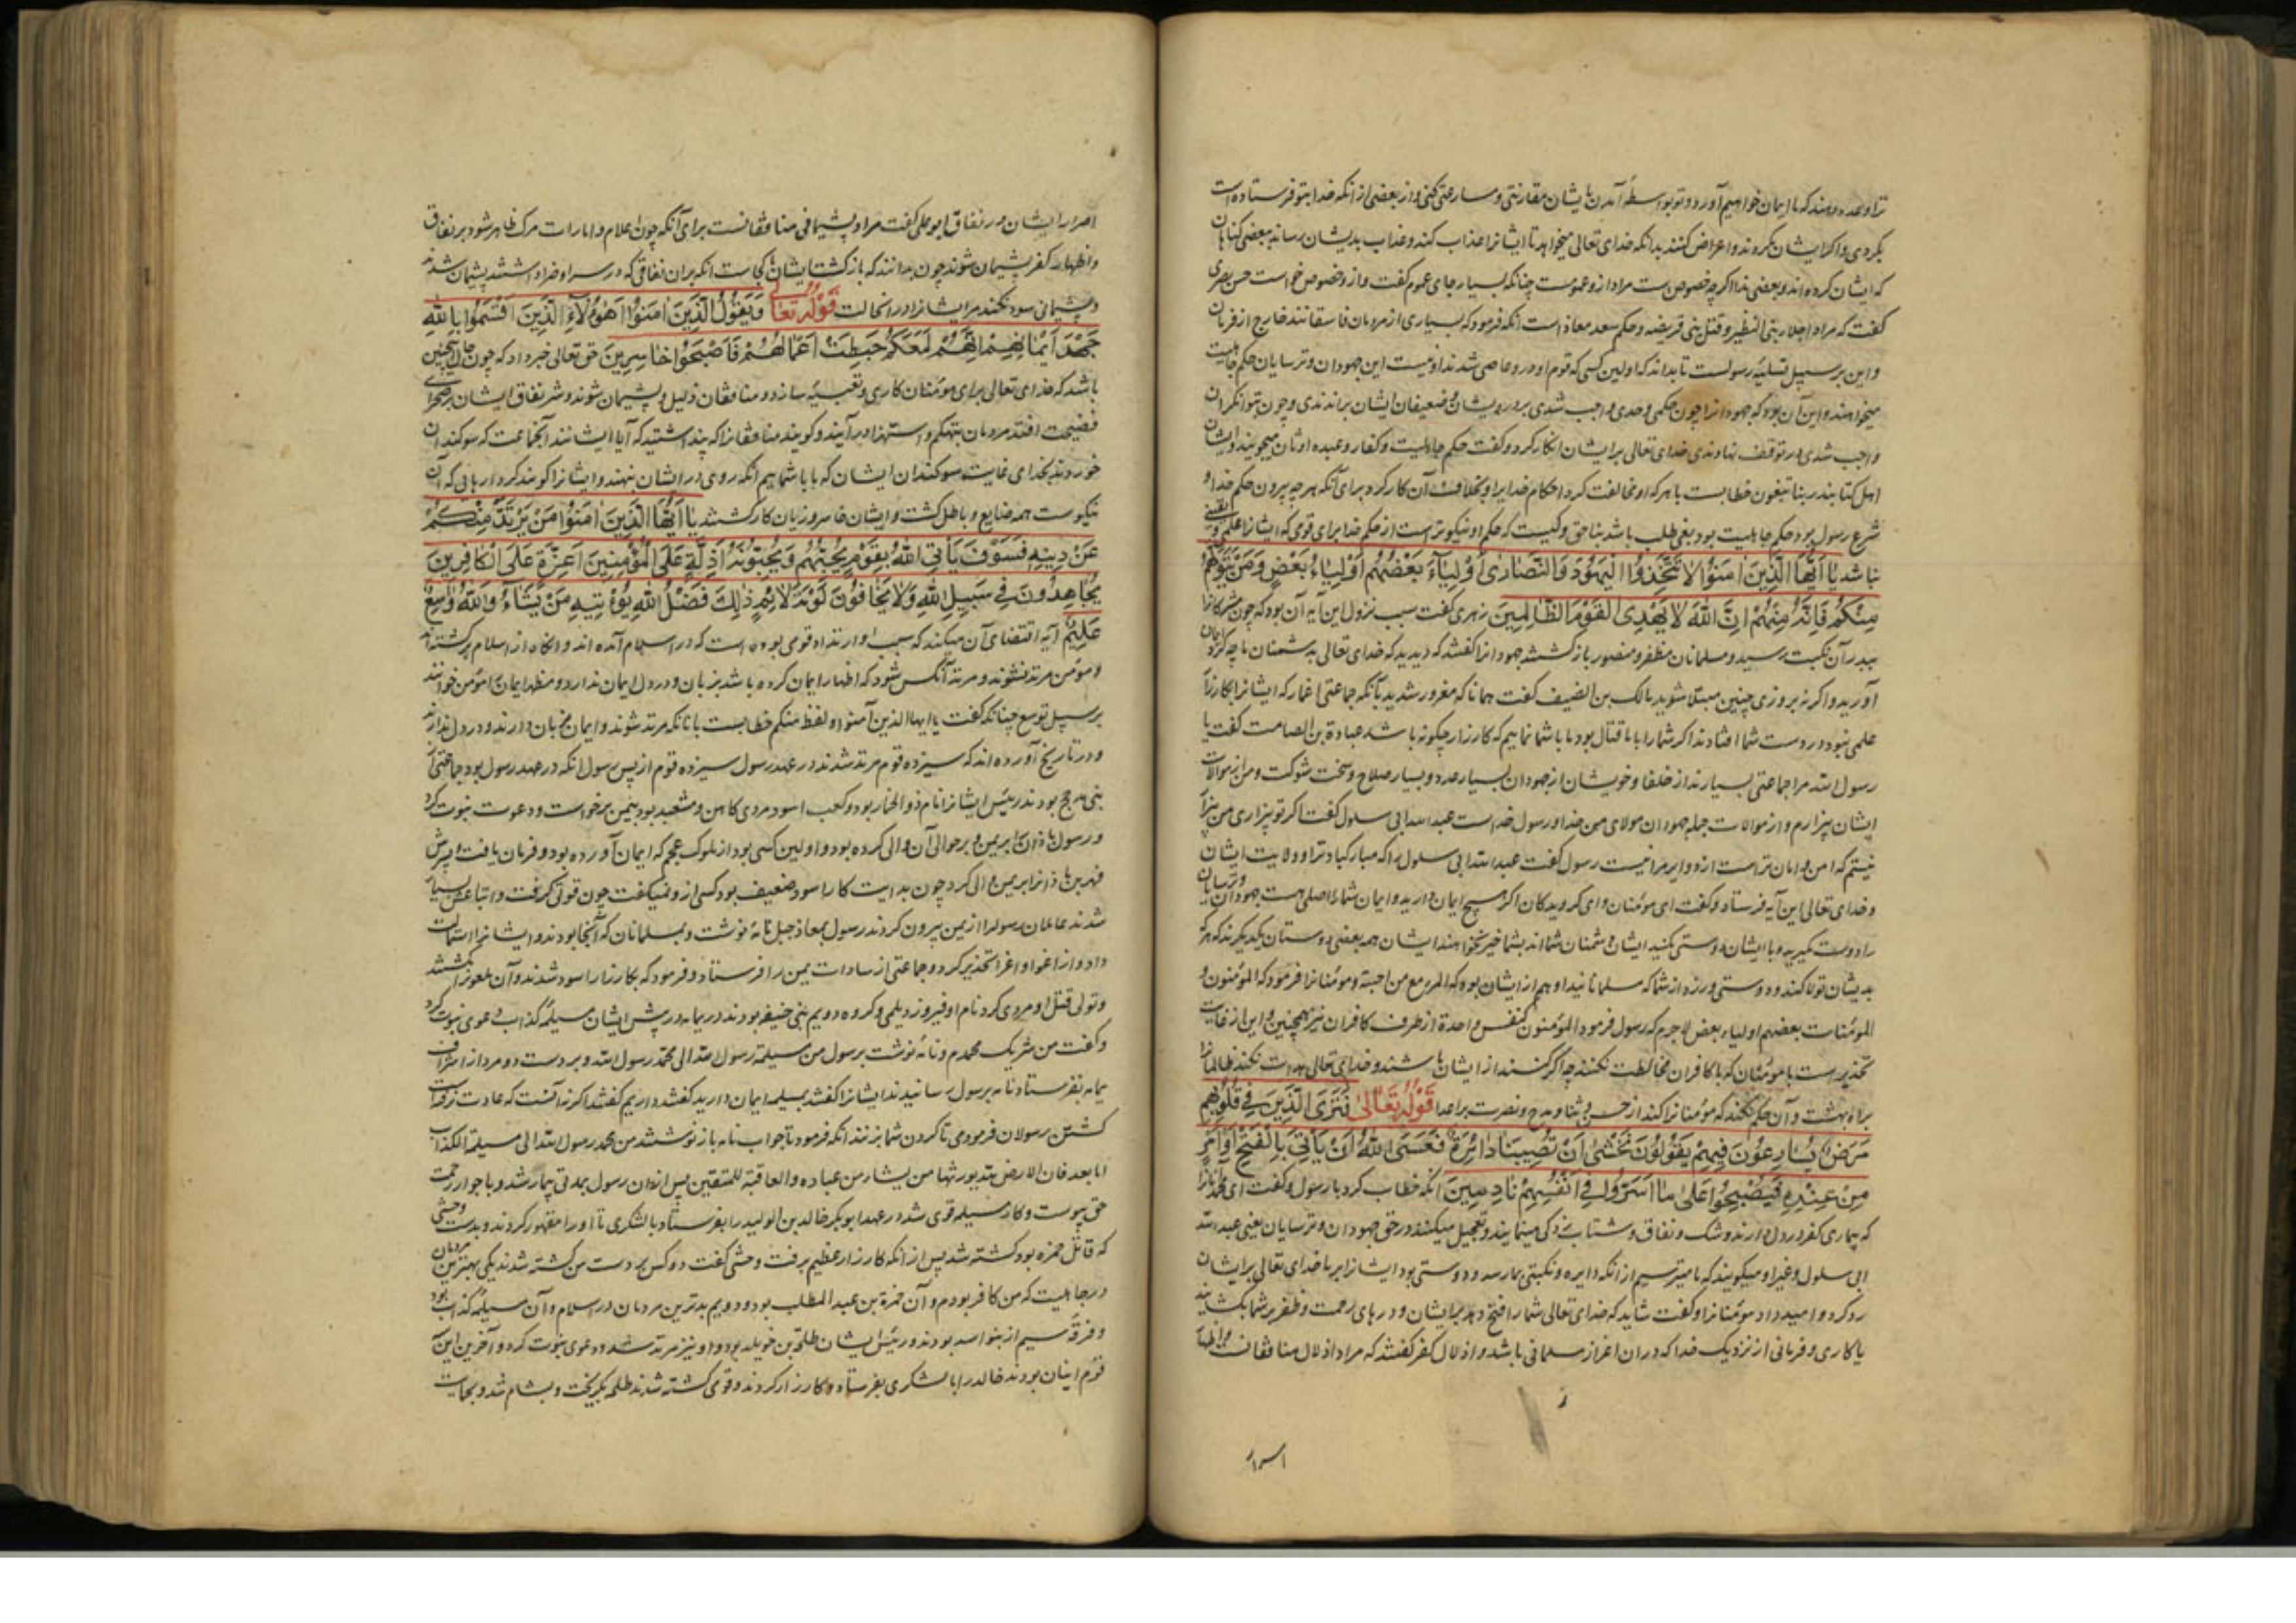 ترا وعده دهند که ما ایمان خواهیم آورد و تو بواسطهٔ آمدن بایشان مقارنتی و مسارعتی کنی و از بعضی از آنکه خدا بتو فرستاده است
بگردی و اگر ایشان بگروند و اعراض کنند بدانکه خدای تعالی میخواهد تا ایشانرا عذاب کند و عذاب بدیشان رساند ببعضی گناهان
که ایشان کرده اند و بعضی ندا اگرچه خصوص است مراد از و عموست چنانکه بسیار جای عموم گفت و از و خصوص خواست حسن بصری
گفت که مراد اجلاء بنی النضیر و قتل بنی قریضه و حکم سعد معاذ است آنکه فرمود که بسیاری از مردمان فاسقانند خارج از فرمان
و این بر سبیل تسلیهٔ رسولست تا بداند که اولین کسی که قوم او در و عاصی شدند او نیست این جهودان و ترسایان حکم جاهلیت
میخواهند و این آن بود که جهودانرا چون حکمی و حدی واجب شدی بر درویشان و ضعیفان ایشان براندندی و چون بتوانگران
واجب شدی در توقف نهادندی خدای تعالی بر ایشان انکار کرد و گفت حکم جاهلیت و کفار و عبده اوثان میجویند و ایشان
اهل کتابند ربنا تبغون خطابست با هر که او مخالفت کرد احکام خدایرا و بخلاف آن کار کرد برای آنکه هر چه بیرون حکم خدا و
شرع رسول بود حکم جاهلیت بود یبغی طلب باشد بناحق و کیست که حکم او نیکوتر است از حکم خدا برای قومی که ایشانرا علمی و یقینی
باشد یَا اَیُّهَا الَّذِینَ اٰمَنُوا لَا تَتَّخِذُوا الْیَهُودَ وَالنَّصَارٰی اَوْلِیَآءَ بَعْضُهُمْ اَوْلِیَآءُ بَعْضٍ وَمَنْ یَتَوَلَّهُمْ
مِنْکُمْ فَاِنَّهُ مِنْهُمْ اِنَّ اللّٰهَ لَا یَهْدِی الْقَوْمَ الظَّالِمِینَ زهری گفت سبب نزول این آیه آن بود که چون مشرکانرا
ببدر آن نکبت رسید و مسلمانان مظفر و منصور بازگشتند جهودانرا گفتند که دیدید که خدای تعالی بدشمنان ما چه کرد ایمان
آورید و اگر نه بروزی چنین مبتلا شوید مالک بن الضیف گفت همانا که مغرور شدید بآنکه جماعتی اغمار که ایشانرا بکارزار
علمی نبود در دست شما افتادند اگر شما را با ما قتال بود ما باشما نماییم که کارزار چگونه باشد عبادة بن الصامت گفت یا
رسول الله مرا جماعتی بسیارند از حلفا و خویشان از جهودان بسیار عدد و بسیار صلاح و سخت شوکت و من از موالات
ایشان بیزارم و از موالات جمله جهودان مولای من خدا و رسول خداست عبدالله ابی سلول گفت اگر تو بیزاری من بیزار
نیستم که امن و امان تر است از دوایر مرا نیست رسول گفت عبدالله ابی سلول را که مبارکباد ترا و ولایت ایشان
و خدای تعالی این آیه فرستاد و گفت ای مؤمنان و ای گرویدگان اگر هیچ ایمان دارید و ایمان شما را اصلی هست جهودان و ترسایان
را دوست مگیرید و با ایشان دوستی مکنید ایشان دشمنان شمااند بشما خیر نخواهند ایشان همه بعضی دوستان یکدیگرند که هر که
بدیشان تولا کند و دوستی ورزد از شما که مسلمانانید او هم از ایشان بود که المرء مع من احبه و مؤمنانرا فرمود که المؤمنون و
المؤمنات بعضهم اولیاء بعض لاجرم که رسول فرمود المؤمنون کنفس واحدة از طرف کافران نیز همچنین و این از غایت
تحذیر است با مؤمنان که با کافران مخالطت نکنند چه اگر کنند از ایشان باشند و خدای تعالی هدایت نکند ظالمانرا
براه بهشت و آن حکم نکند که مؤمنانرا کند از حسن و ثنا و مدح و نصرت بر اعدا قَوْلُهُ تَعَالٰی فَتَرَی الَّذِینَ فِی قُلُوبِهِمْ
مَرَضٌ یُسَارِعُونَ فِیهِمْ یَقُولُونَ نَخْشٰی اَنْ تُصِیبَنَا دَائِرَةٌ فَعَسَی اللّٰهُ اَنْ یَأْتِیَ بِالْفَتْحِ اَوْ اَمْرٍ
مِنْ عِنْدِهِ فَیُصْبِحُوا عَلٰی مَا اَسَرُّوا فِی اَنْفُسِهِمْ نَادِمِینَ آنکه خطاب کرد با رسول و گفت ای محمد آنانرا
که بیماری کفر در دل دارند و شک و نفاق و شتاب زدگی مینمایند و تعجیل میکنند در حق جهودان و ترسایان یعنی عبدالله
ابی سلول و غیر او میگویند که ما میترسیم از آنکه دایره و نکبتی بما رسد و دوستی بود ایشانرا بر ما خدای تعالی بر ایشان
رد کرد و امید داد مؤمنانرا و گفت شاید که خدای تعالی شما را فتح دهد بر ایشان و درهای رحمت و ظفر بر شما بگشاید
یا کاری و فرمانی از نزدیک خدا که در ان اعزاز مسلمانی باشد و اذلال کفر گفتند که مراد اذلال منافقانست
اصرار
اصرار ایشان در نفاق ابو علی گفت مراد پشیمانی منافقانست برای آنکه چون اعلام و امارات مرگ ظاهر شود بر نفاق
و اظهار کفر پشیمان شوند چون بدانند که بازگشت ایشان کجاست آنکه بران نفاقی که در سر او ضرا داشتند پشیمان شدند
و پشیمانی سود نکند مر ایشانرا در آنحالت قَوْلُهُ تَعَالٰی وَیَقُولُ الَّذِینَ اٰمَنُوا اَهٰؤُلَآءِ الَّذِینَ اَقْسَمُوا بِاللّٰهِ
جَهْدَ اَیْمَانِهِمْ اِنَّهُمْ لَمَعَکُمْ حَبِطَتْ اَعْمَالُهُمْ فَاَصْبَحُوا خَاسِرِینَ حق تعالی خبر داد که چون حال اینچنین
باشد که خدای تعالی برای مؤمنان کاری و تعبیه سازد و منافقان ذلیل و پشیمان شوند و شر نفاق ایشان بر صحرای
فضیحت افتد مردمان بتهکم و استهزاء برآیند و گویند منافقانرا که پنداشتید که آیا ایشانند آنجماعت که سوگندان
خوردند بخدای غایت سوگندان ایشان که ما باشماییم آنکه روی در ایشان نهند و ایشانرا گویند کردارهایی که آن
نیکوست همه ضایع و باطل گشت و ایشان خاسر و زیان کار گشتند یَا اَیُّهَا الَّذِینَ اٰمَنُوا مَنْ یَرْتَدَّ مِنْکُمْ
عَنْ دِینِهِ فَسَوْفَ یَأْتِی اللّٰهُ بِقَوْمٍ یُحِبُّهُمْ وَیُحِبُّونَهُ اَذِلَّةٍ عَلَی الْمُؤْمِنِینَ اَعِزَّةٍ عَلَی الْکَافِرِینَ
یُجَاهِدُونَ فِی سَبِیلِ اللّٰهِ وَلَا یَخَافُونَ لَوْمَةَ لَائِمٍ ذٰلِکَ فَضْلُ اللّٰهِ یُؤْتِیهِ مَنْ یَشَآءُ وَاللّٰهُ وَاسِعٌ
عَلِیمٌ آیه اقتضای آن میکند که سبب او ارتداد قومی بوده است که در اسلام آمده اند و آنگاه از اسلام برگشته اند
و مؤمن مرتد نشوند و مرتد آنکس شود که اظهار ایمان کرده باشد بزبان و در دل ایمان ندارد و مظهر ایمان را مؤمن خوانند
بر سبیل توسع چنانکه گفت یا ایها الذین آمنوا و لفظ منکم خطابست با آنانکه مرتد شوند و ایمان بزبان دارند و در دل ندارند
و در تاریخ آورده اند که سیزده قوم مرتد شدند در عهد رسول سیزده قوم از پس رسول آنکه در عهد رسول بود جماعتی از
بنی مدلج بودند رئیس ایشانرا نام ذوالخمار بود و کعب اسود مردی کاهن و مشعبد بود بیمن برخواست و دعوت نبوت کرد
و رسول باذان را بر یمن و بر حوالی آن والی کرده بود و اولین کسی بود از ملوک عجم که ایمان آورده بود و فرمان یافت و پسرش
شهر بن باذانرا بر یمن والی کرد چون بدایت کار اسود ضعیف بود کسی از و نمیگفت چون قوتی گرفت و اتباعش بسیار
شدند عاملان رسولرا از یمن بیرون کردند رسول بمعاذ جبل نامه نوشت و بمسلمانان که آنجا بودند و ایشانرا استمالت
داد و از اغوا و اغراء تحذیر کرد و جماعتی از سادات یمن را فرستاد و فرمود که بکارزار اسود شدند و آن ملعونرا بکشتند
و تولی قتل او مردی کرد نام او فیروز دیلمی و گروه دویم بنی حنیفه بودند در یمامه رئیس ایشان مسیلمه کذاب دعوی نبوت کرد
و گفت من شریک محمدم و نامه نوشت برسول من مسیلمة رسول الله الی محمد رسول الله و بر دست دو مرد از اشراف
یمامه بفرستاد نامه برسول رسانیدند ایشانرا گفتند بمسیلمه ایمان دارید گفتند داریم گفتند اگر نه آنست که عادت نرفته است
کشتن رسولان فرمودی تا گردن شما بزنند آنکه فرمود تا جواب نامه باز نوشتند من محمد رسول الله الی مسیلمة الکذاب
اما بعد فان الارض لله یورثها من یشاء من عباده والعاقبة للمتقین پس از ان رسول بمدتی بیمار شد و با جوار رحمت
حق پیوست و کار مسیلمه قوی شد در عهد ابوبکر خالد بن الولید را بفرستاد با لشکری تا او را مقهور کردند و بدست وحشی
که قاتل حمزه بود کشته شد پس از آنکه کارزار عظیم برفت وحشی گفت دو کس بر دست من کشته شدند یکی بهترین مردمان
در جاهلیت که من کافر بودم و آن حمزة بن عبد المطلب بود و دویم بدترین مردمان در اسلام و آن مسیلمه کذاب بود
و فرقهٔ سیم از بنو اسد بودند و رئیس ایشان طلحة بن خویلد بود و او نیز مرتد شد و دعوی نبوت کرد و آخرین این
قوم اینان بودند خالد را با لشکری بفرستاد و کارزار کردند و قومی کشته شدند طلحه بگریخت و بشام شد و بحمایت